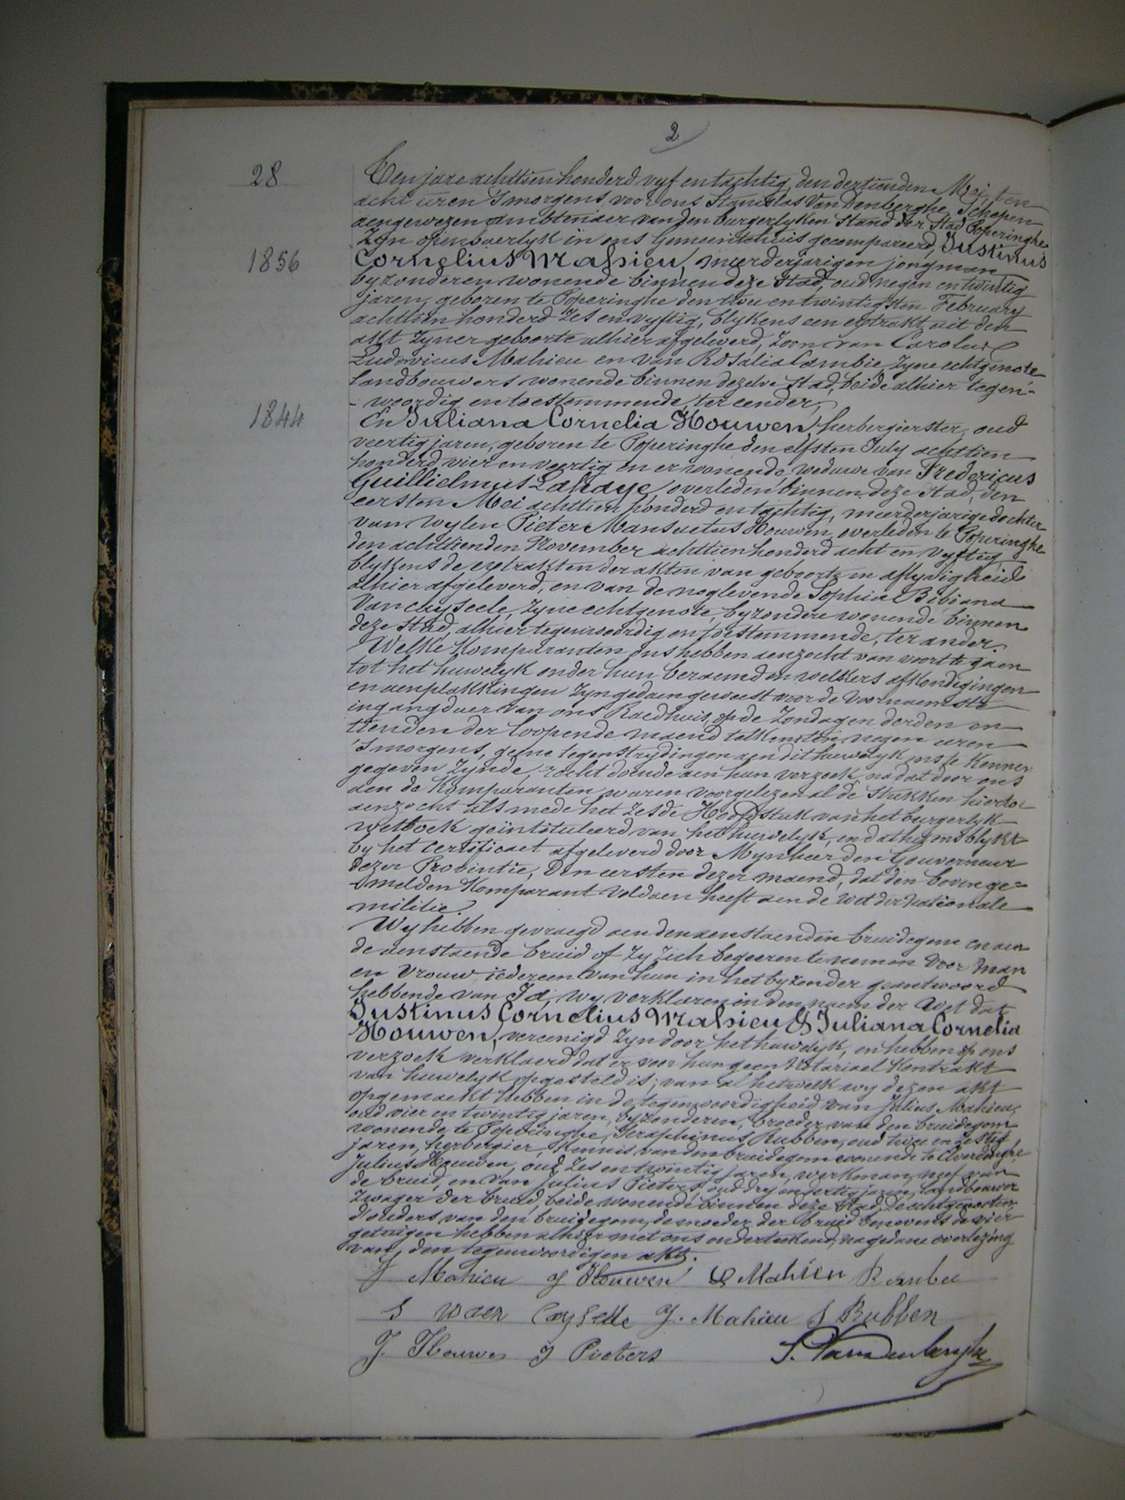 2
28
Ten jare achttien honderd vyf en tachtig, den dertienden Mei, ten
acht uren 's morgens voor ons Stanislas Van Denberghe, Schepen
aengewezen ambtenaer van den burgerlyken Stand der Stad Poperinghe
Zyn openbaerlyk in ons Gemeentehuis gecompareerd, Justinus
1856
Cornelius Mahieu, meerderjarigen jongman
byzonderen wonende binnen deze Stad, oud negen en twintig
jaren, geboren te Poperinghe den twee en twintigsten February
achttien honderd Zes en vyftig, blykens een extrakt uit den
akt Zyner geboorte alhier afgeleverd, Zoon van Carolus
Ludovicus Mahieu en van Rosalia Cambie, Zyne echtgenote
landbouwers wonende binnen dezelve Stad, beide alhier tegen-
-woordig en toestemmende, ter eender,
1844
En Juliana Cornelia Houwen, herbergierster, oud
veertig jaren, geboren te Poperinghe den elfsten July achttien
honderd vier en veertig en er wonende, weduwe van Fredericus
Guillielmus Lahaye, overleden binnen deze Stad, den
eersten Mei achttien honderd en tachtig, meerderjarige dochter
van wylen Pieter Mansuetus Houwen, overleden te Poperinghe
den achttienden November achttien honderd acht en vyftig,
blykens de extrakten der akten van geboorte en aflyvigheid
alhier afgeleverd, en van de noglevende Sophia Bibiana
Vancayseele, Zyne echtgenote, byzondere wonende binnen
deze Stad, alhier tegenwoordig en toestemmende, ter ander.
Welke Komparanten ons hebben aenzocht van voort te gaen
tot het huwelyk onder hun beraemd en welkers afkondigingen
en aenplakkingen Zyn gedaen geweest voor de voornaemste
ingangdeur van ons Raedhuis, op de Zondagen derden en
tienden der loopende maend telkens ten negen uren
's morgens, geene tegenstrydingen aen dit huwelyk ons te Kennen
gegeven Zynde, recht doende aen hun verzoek, na dat door ons
aen de Komparanten waren voorgelezen al de Stukken hiertoe
aenzocht als mede het Zesde Hoofdstuk van het burgerlyk
wetboek geïntituleerd van het huwelyk, en dat het ons blykt
by het certificaet afgeleverd door Mynheer den Gouverneur
dezer Provintie, den eersten dezer maend, dat den bovenge=
=melden Komparant voldaen heeft aen de wet der Nationale
militie.
Wy hebben gevraegd aen den aenstaenden bruidegom en aen
de aenstaende bruid of Zy Zich begeeren te nemen voor man
en vrouw iedereen van hun in het byzonder geantwoord
hebbende van Ja, wy verklaren in den naem der Wet dat
Justinus Cornelius Mahieu & Juliana Cornelia
Houwen, vereenigd Zyn door het huwelyk, en hebben op ons
verzoek verklaerd dat er voor hun geen Notariael Kontrakt
van huwelyk opgesteld is; van al hetwelk wy dezen akt
opgemaekt hebben in de tegenwoordigheid van Julius Mahieu,
oud vier en twintig jaren, byzonderen, broeder van den bruidegom
wonende te Poperinghe, Seraphinus Rubben, oud twee en Zestig
jaren, herbergier, Kennis van den bruidegom wonende te
Julius Houwen, oud Zes en twintig jaren, werkman, neef van
de bruid, en van Julius Pieters, oud dry en veertig jaren, landbouwer
Zwager der bruid, beide wonende binnen deze Stad, De echtgenooten,
d'ouders van den bruidegom, de moeder der bruid benevens de vier
getuigen hebben alhier met ons onderteekend, na gedane overlezing
van den tegenwoordigen akt.
J Mahieu J Houwen Mahieu R Cambie
S Cayseele J. Mahieu S Rubben
J. Houwen J Pieters S. Vandenberghe